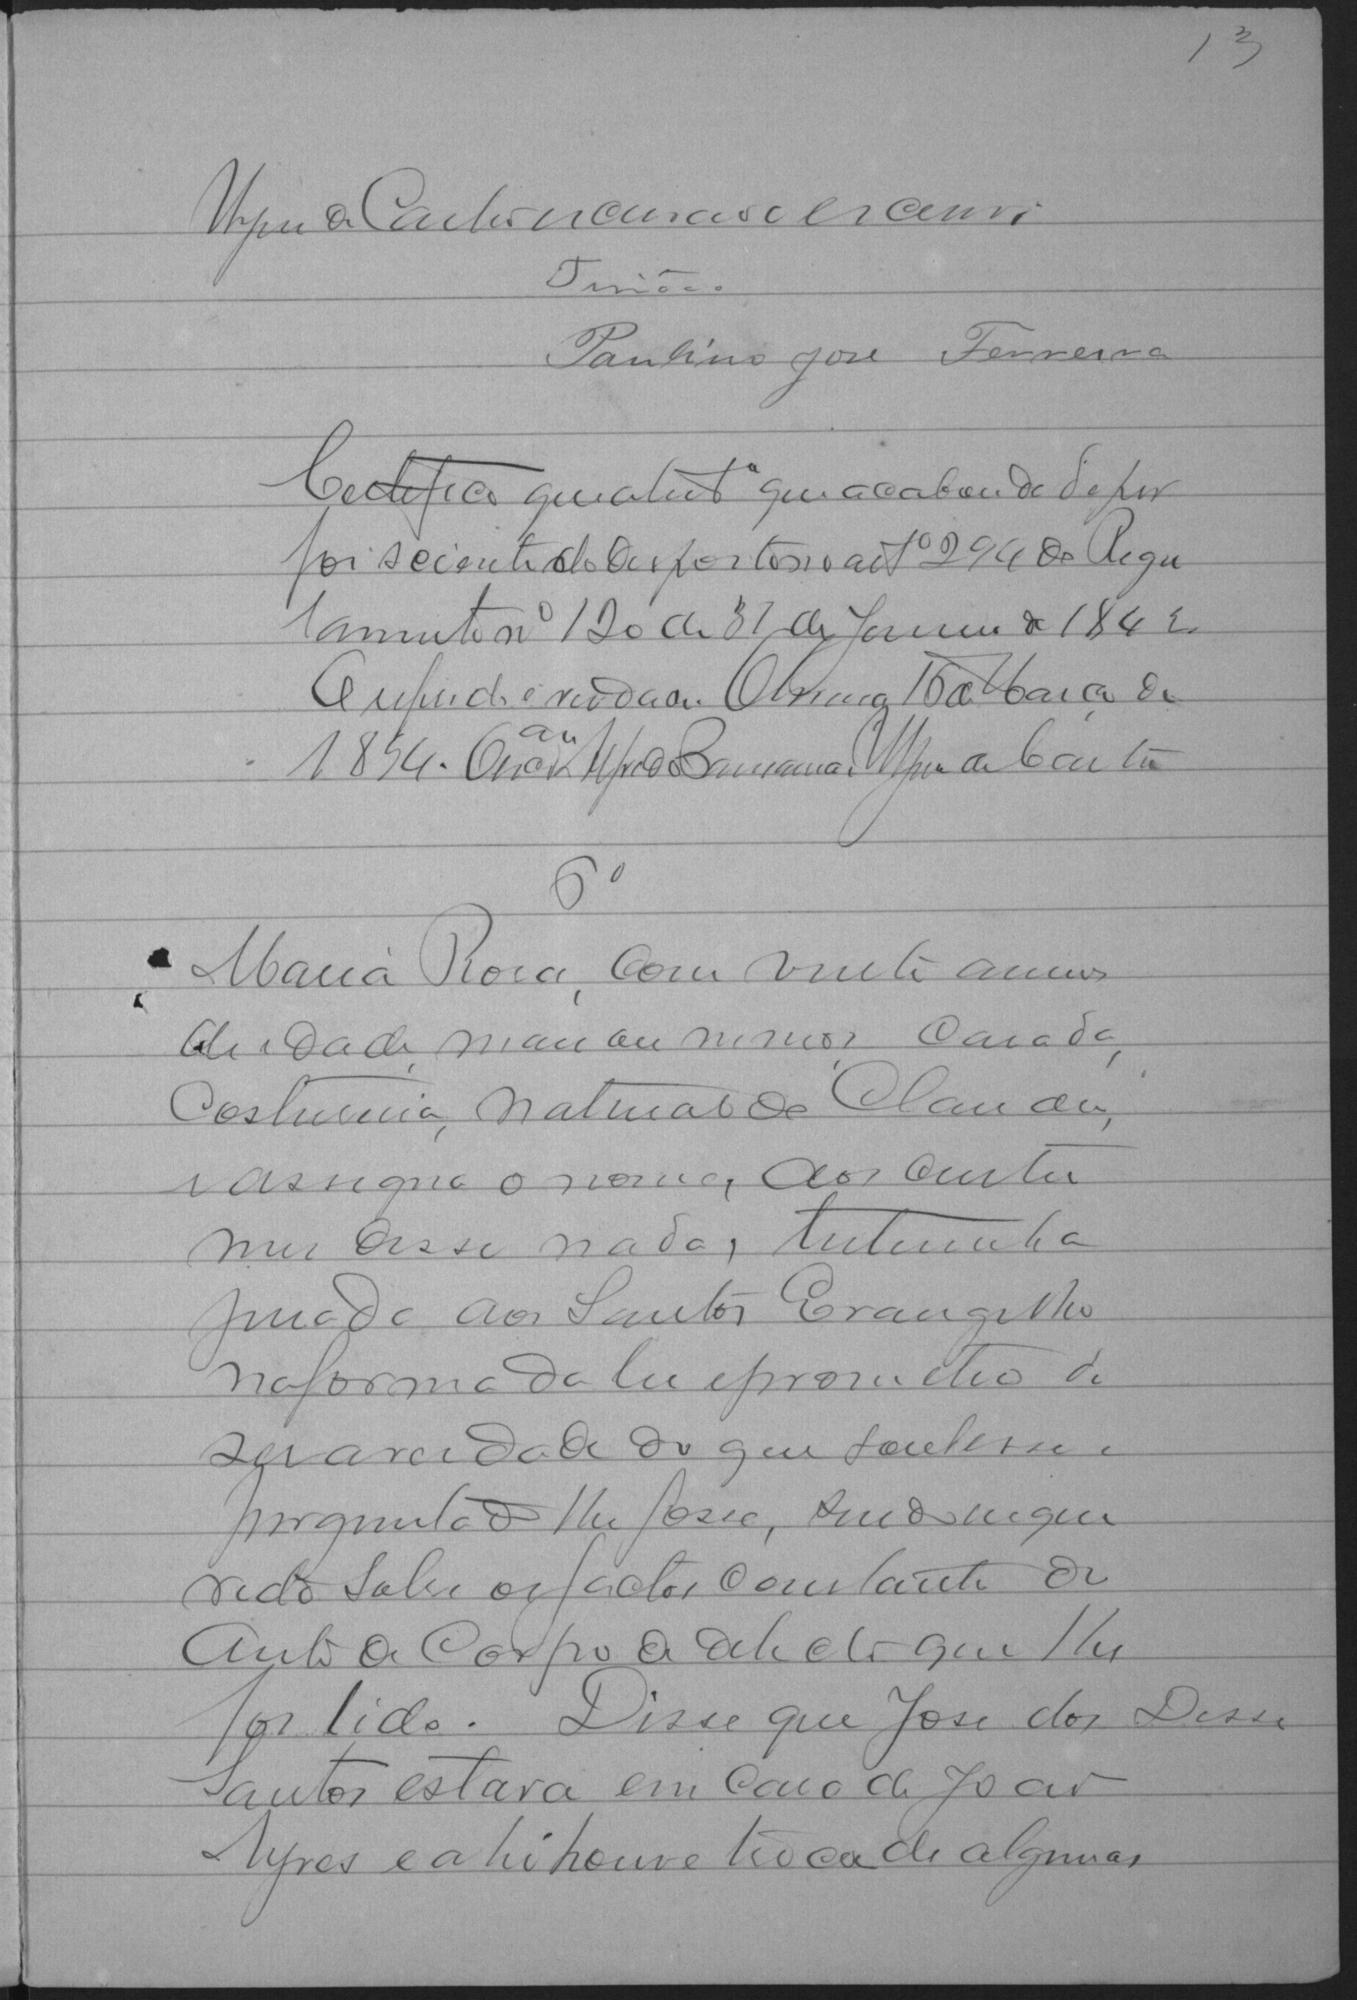 13
de Castro
Paulino Jose Ferreira
Certifico que a test.ª que acabou de depor
foi sciente do disposto no art.º 294 do Regu
lamento nº 120 de 31 de Janeiro de 1842.
O referido é verdade. 16 de Março de
1894. de Castro
6º
Maria Rosa, com vinte annos
de idade, mais ou menos, casada,
Costureira, natural do Claudio,
e assigna o nome, aos custu
mes disse nada, testemunha
jurada aos Santos Evangelho
na forma da lei e prometteo di
ser a verdade do que soubesse e
perguntado lhe fosse, sendo inque
rido sobre os factos constante do
Auto de Corpo de delicto que lhe
foi lido. Disse que Jose dos Disse
Santos estava em casa de Joao
Ayres e ahi houve troca de algumas